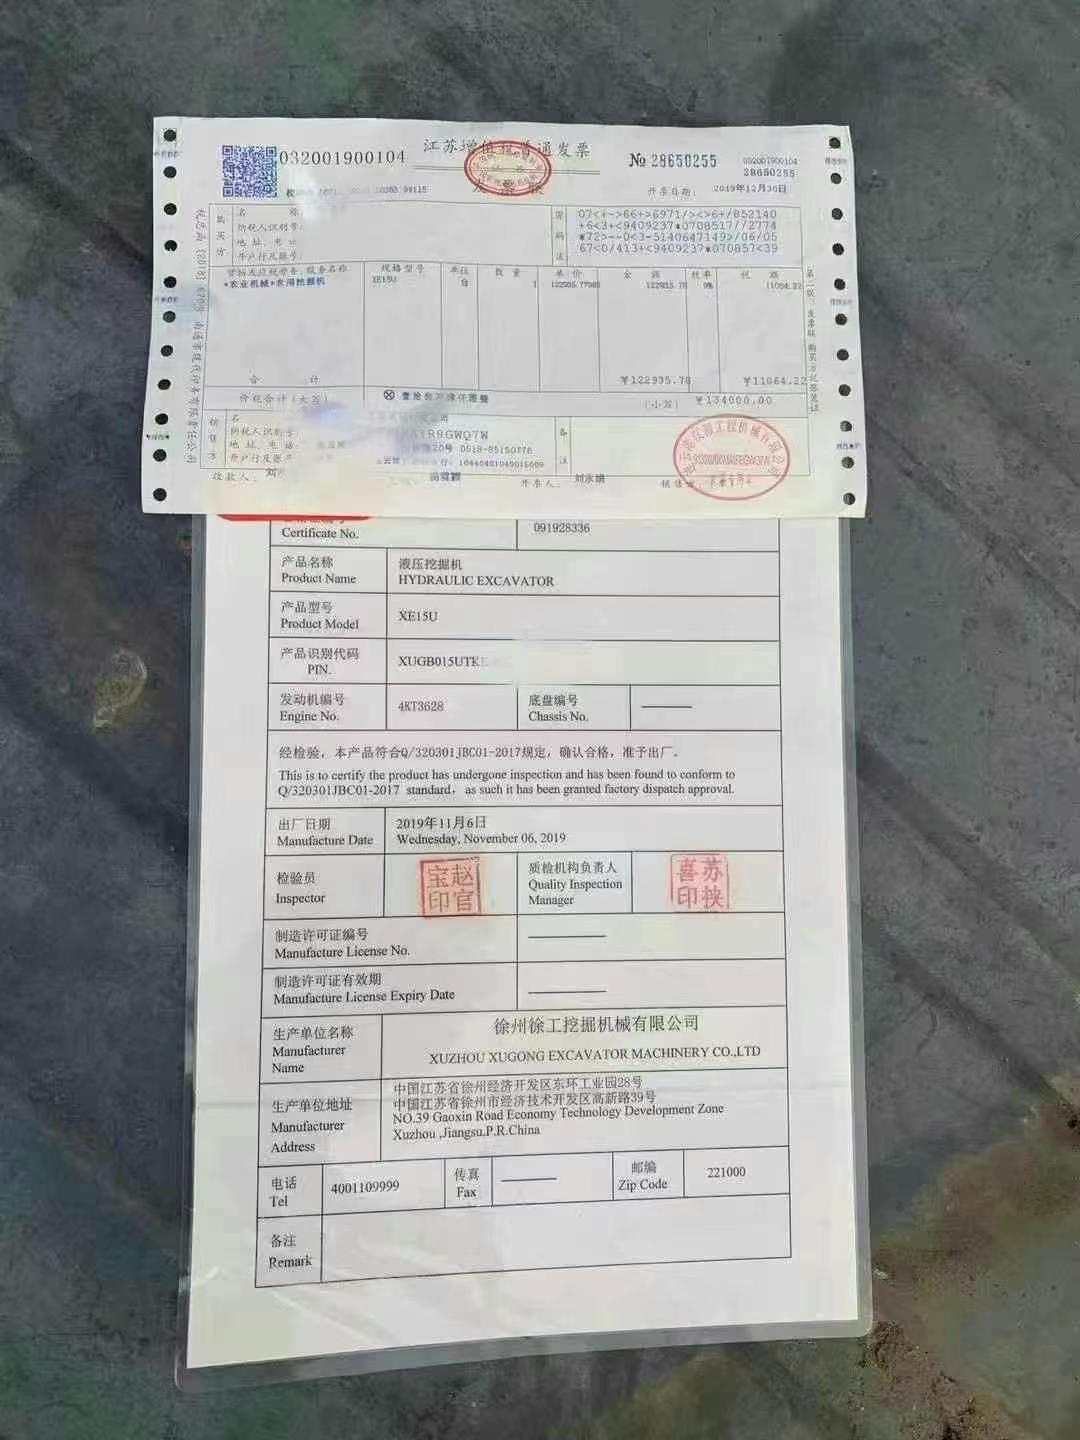 032001900104
江苏增值税普通发票
№ 28650255
032001900104
28650255
开票日期: 2019年12月30日
税总函
南通市现代印务有限责任公司
购买方
名 称
纳税人识别号:
地 址、电 话:
开户行及账号:
密码
07<+->66+>6971/><>6+/852140
+6<3+<9409237*0708517//2774
*72>--0<3-5140647149>/06/05
67<0/413+<9409237*070857<39
货物或应税劳务、服务名称 规格型号 单位 数 量 单 价 金 额 税率 税 额
*农业机械*农用挖掘机 XE15U 台 1 122935.77 122935.78 9% 11064.22
合 计 ¥122935.78 ¥11064.22
价税合计(大写) ⊗ 壹拾叁万肆仟圆整 (小写) ¥134000.00
销售方
名
纳税人识别号:
地 址、电 话: 20号 0518-85150776
开户行及账号: 10440401040015009
备注
收款人: 刘 开票人: 刘永娟 销售
第二联:发票联 购买方记账凭证
Certificate No. 091928336
产品名称 液压挖掘机
Product Name HYDRAULIC EXCAVATOR
产品型号
Product Model XE15U
产品识别代码
PIN. XUGB015UTK
发动机编号
Engine No. 4KT3628
底盘编号
Chassis No. ———
经检验，本产品符合Q/320301JBC01-2017规定，确认合格，准予出厂。
This is to certify the product has undergone inspection and has been found to conform to
Q/320301JBC01-2017 standard， as such it has been granted factory dispatch approval.
出厂日期 2019年11月6日
Manufacture Date Wednesday, November 06, 2019
检验员
Inspector
赵官宝印
质检机构负责人
Quality Inspection
Manager
苏挟喜印
制造许可证编号
Manufacture License No. ———
制造许可证有效期
Manufacture License Expiry Date ———
生产单位名称
Manufacturer
Name
徐州徐工挖掘机械有限公司
XUZHOU XUGONG EXCAVATOR MACHINERY CO.,LTD
生产单位地址
Manufacturer
Address
中国江苏省徐州经济开发区东环工业园28号
中国江苏省徐州市经济技术开发区高新路39号
NO.39 Gaoxin Road Economy Technology Development Zone
Xuzhou ,Jiangsu.P.R.China
电话
Tel 4001109999
传真
Fax ———
邮编
Zip Code 221000
备注
Remark